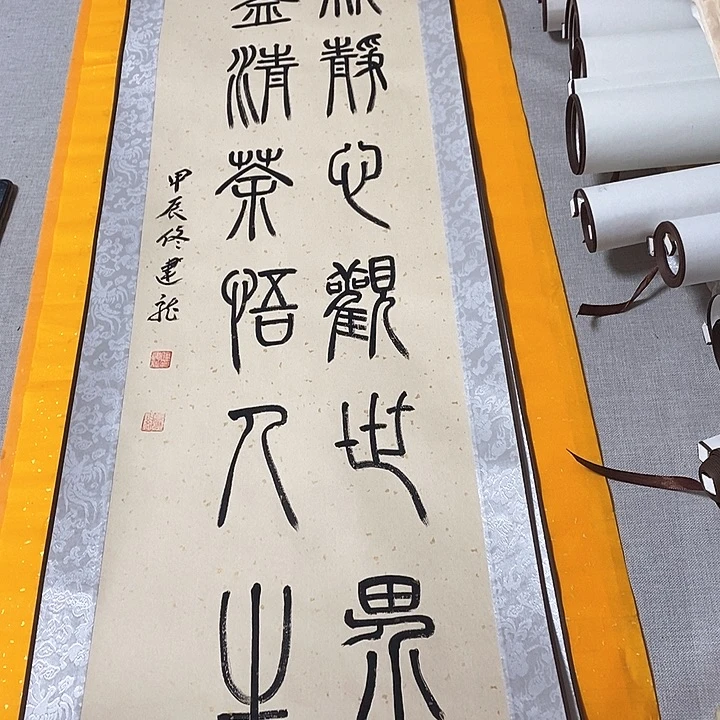 靜心觀世界
清茶悟人生
甲辰佟建龍